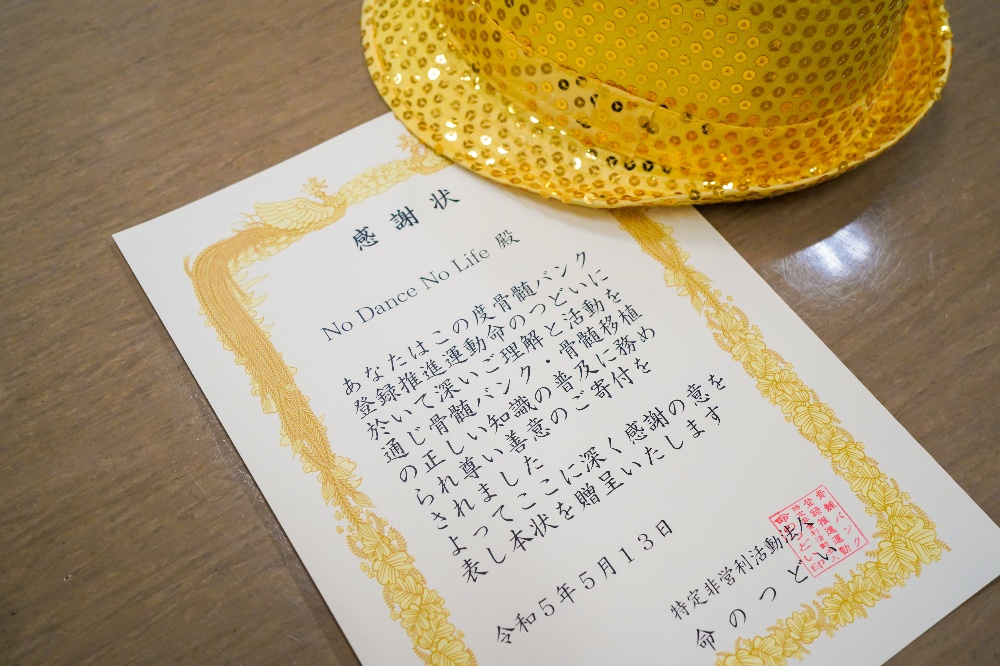 感謝状
No Dance No Life 殿
あなたはこの度骨髄バンク
登録推進運動命のつどいに
於いて深いご理解と活動を
通じ骨髄バンク・骨髄移植
の正しい知識の普及に務め
られ尊い善意のご寄付を
されました
よってここに深く感謝の意を
表し本状を贈呈いたします
令和5年5月13日
特定非営利活動法人
命のつどい
骨髄バンク
登録推進運動